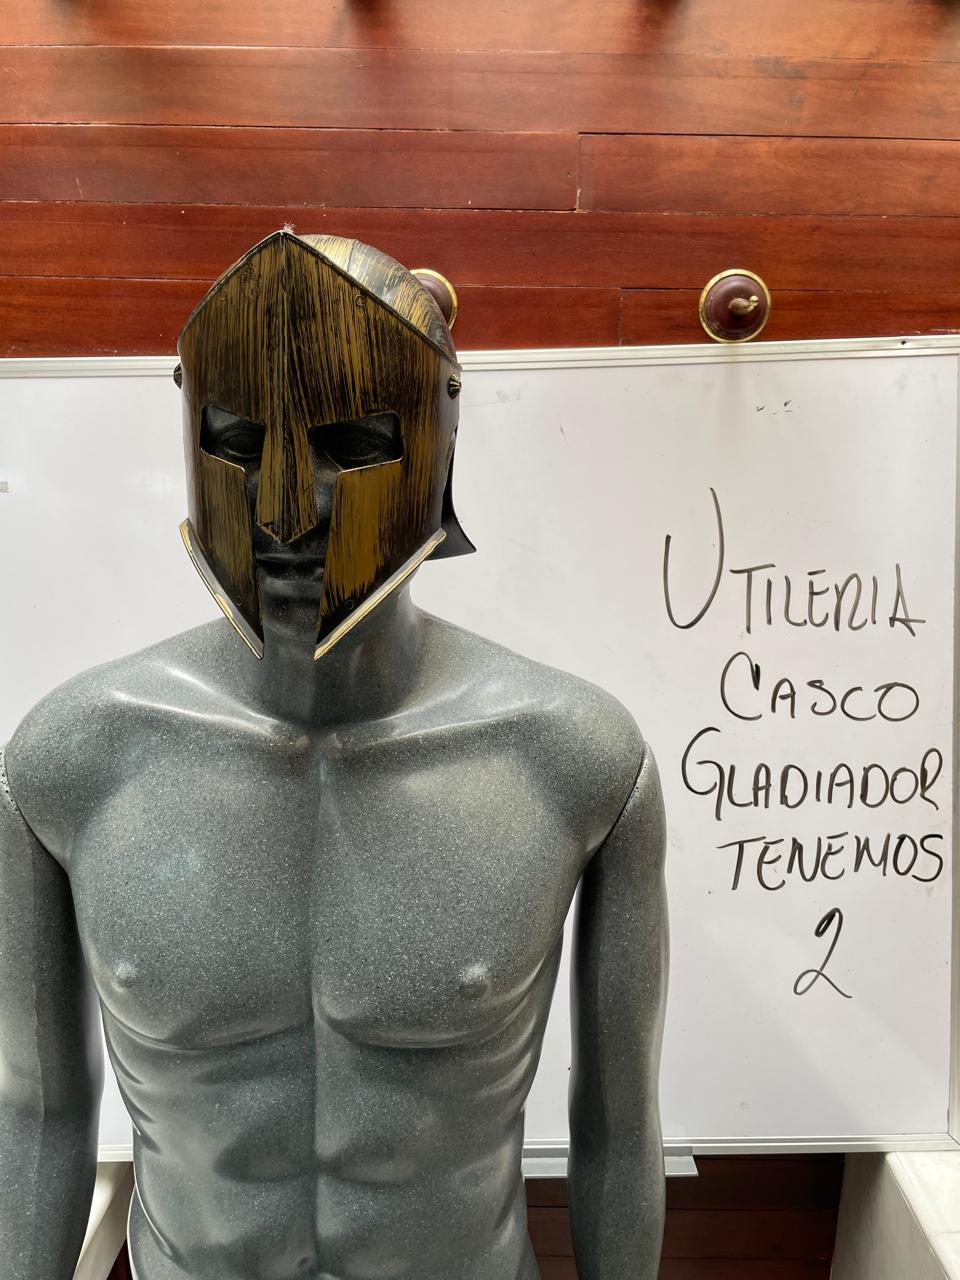 UTILERIA
CASCO
GLADIADOR
TENEMOS
2